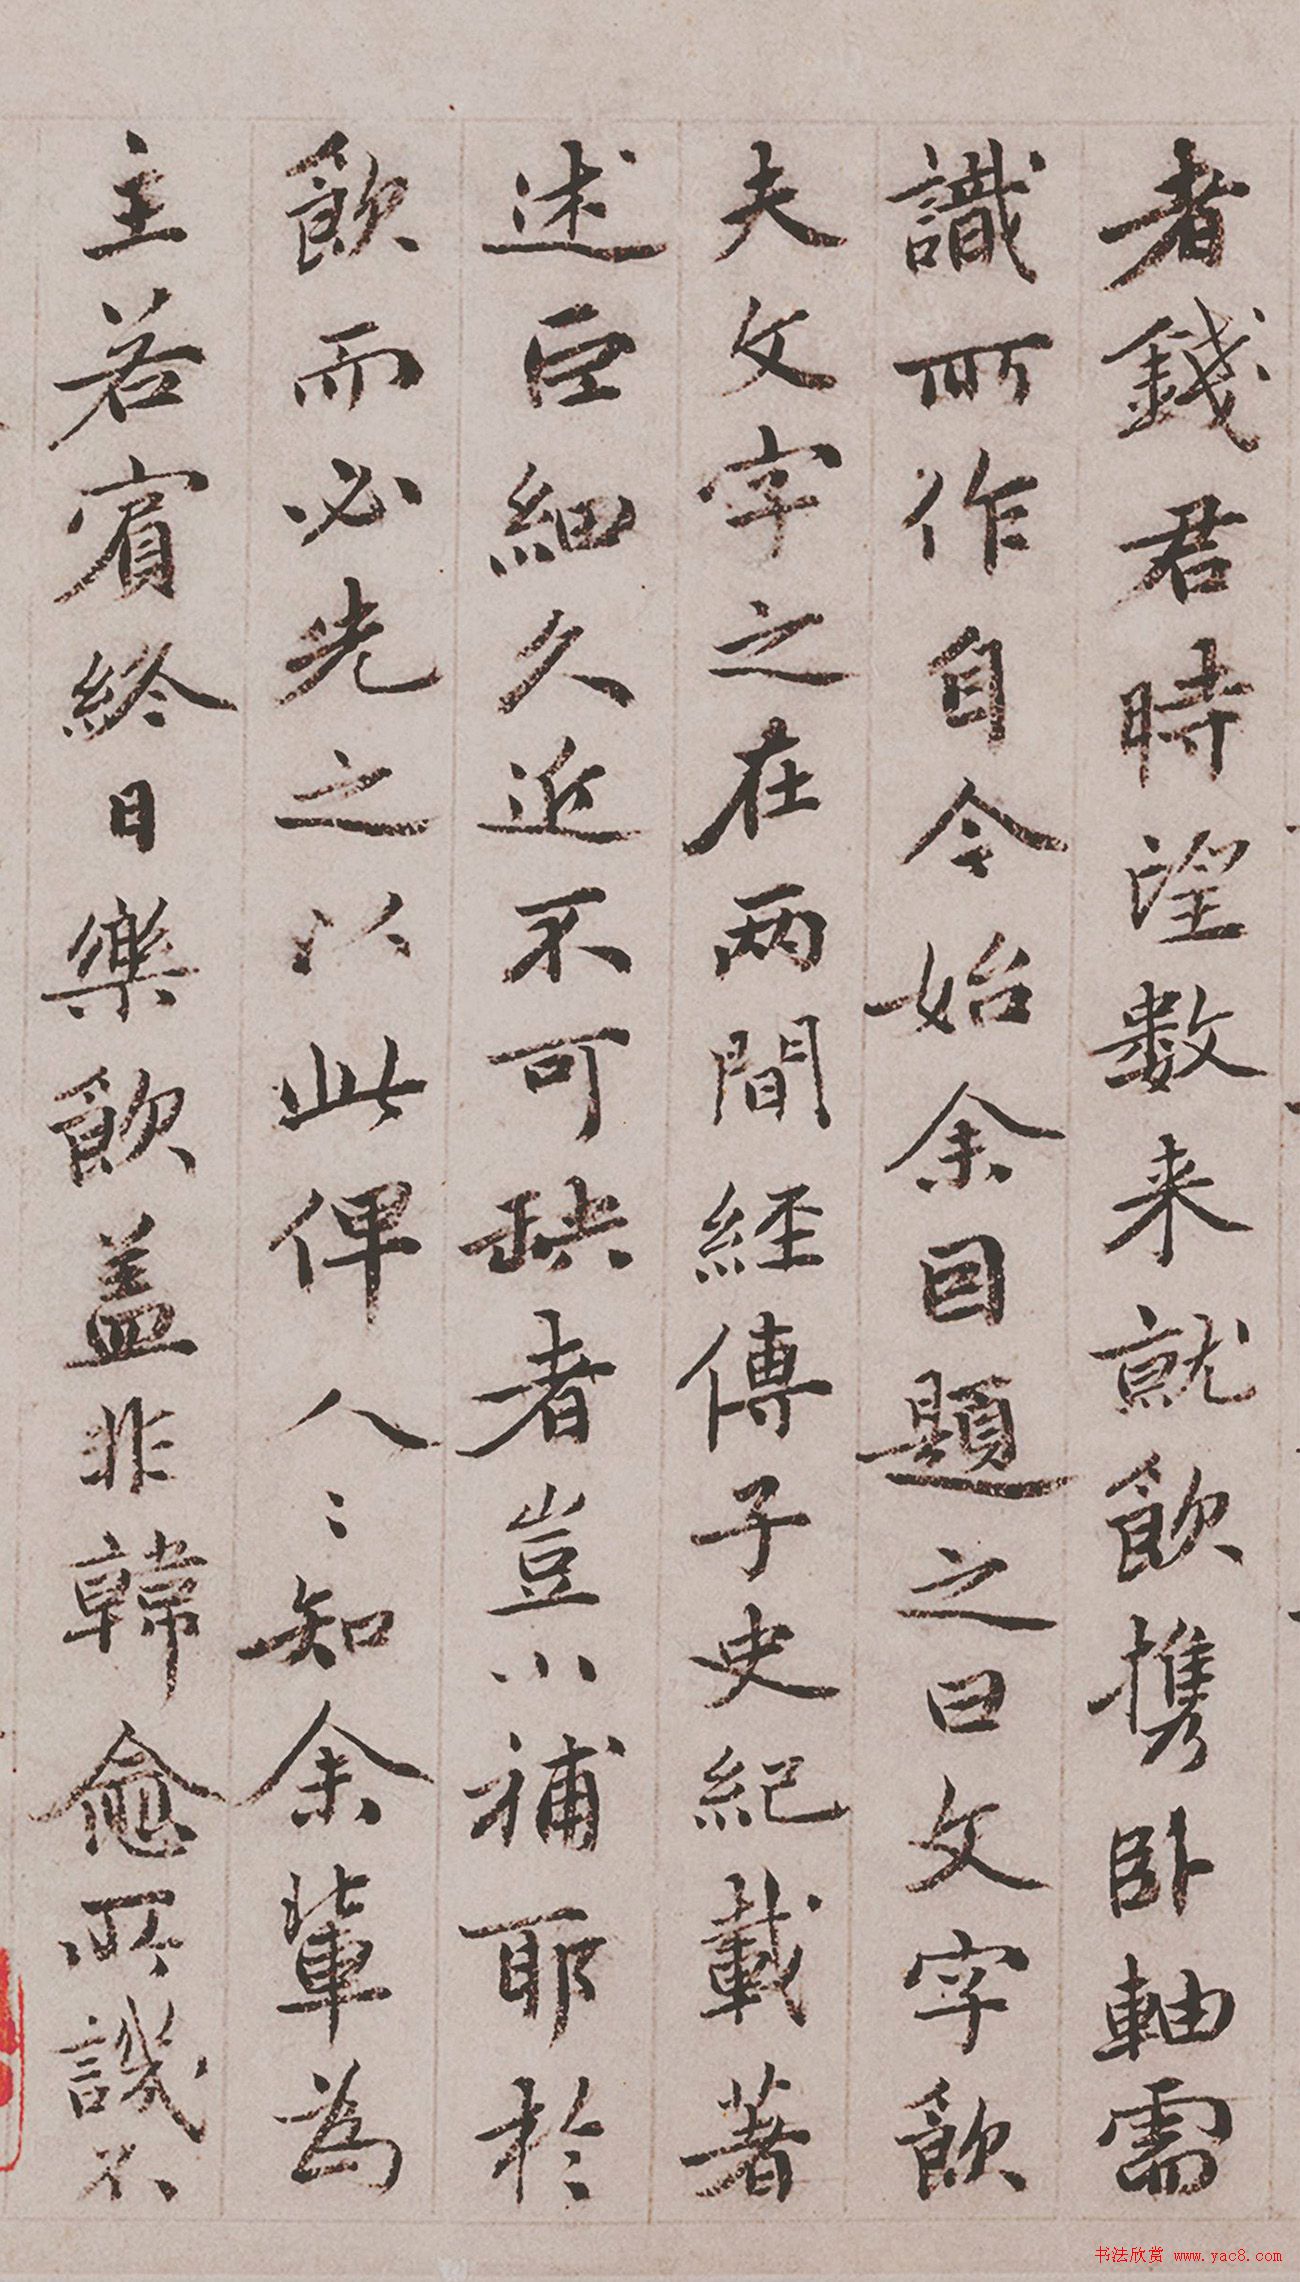 者錢君時望數来就飲携卧軸需
識所作自今始余因題之曰文字飲
夫文字之在两間經傳子史紀載著
述巨細久近不可缺者豈小補耶於
飲而必先之以此俾人〻知余輩為
主若賓終日樂飲盖非韓愈所譏不
书法欣赏 www.yac8.com